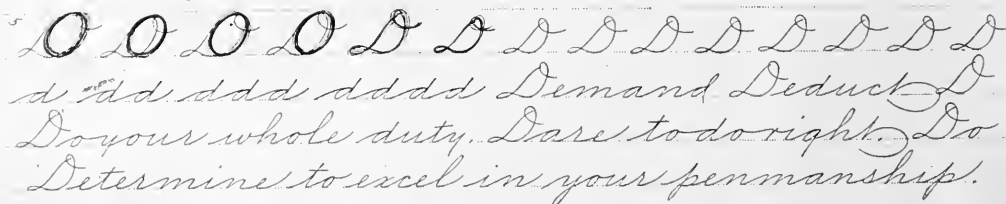 D D D D D D D D D D D D D D
d dd ddd dddd Demand Deduct D
Do your whole duty. Dare to do right. Do
Determine to excel in your penmanship.